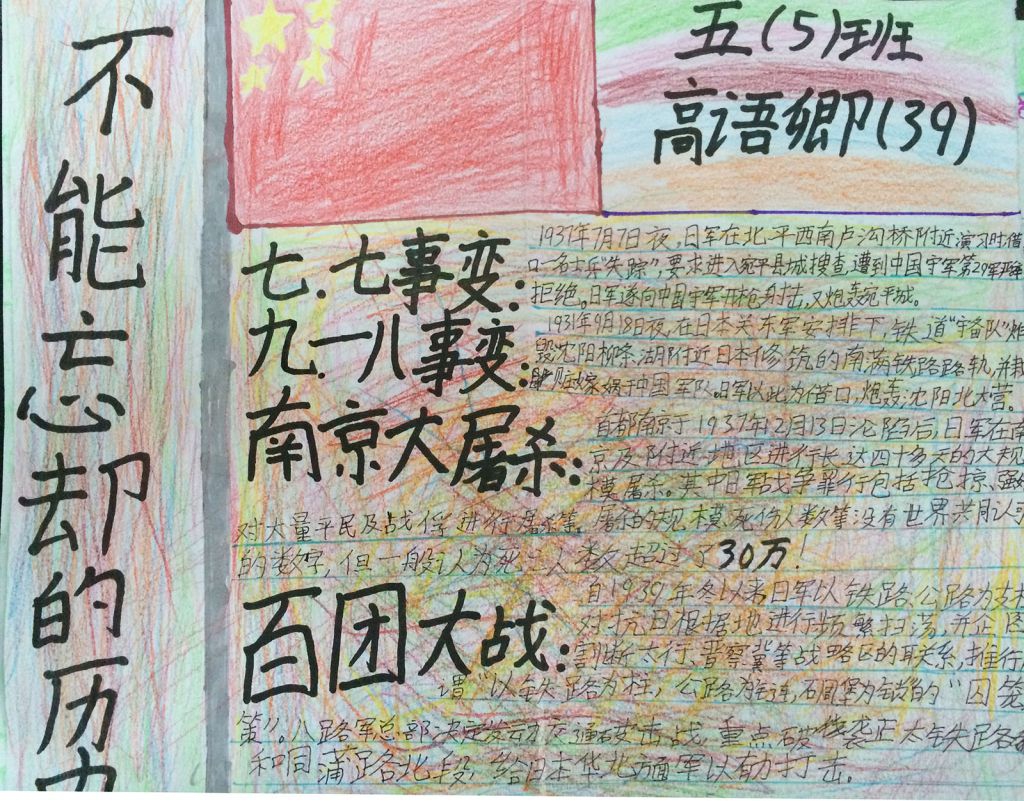 不能忘却的历
五(5)班
高语卿(39)
七.七事变:
1937年7月7日夜,日军在北平西南卢沟桥附近演习时借
口一名士兵"失踪",要求进入宛平县城搜查,遭到中国守军第29军严
拒绝。日军遂向中国守军开枪射击,又炮轰宛平城。
九.一八事变:
1931年9月18日夜,在日本关东军安排下,铁道"守备队"炸
毁沈阳柳条湖附近日本修筑的南满铁路路轨,并
赃嫁祸于中国军队。日军以此为借口,炮轰沈阳北大营。
南京大屠杀:
首都南京于1937年12月13日沦陷后,日军在南
京及附近地区进行长达四十多天的大规
模屠杀。其中日军战争罪行包括抢掠、强奸
对大量平民及战俘进行屠杀等。屠杀的规模、死伤人数等没有世界共同认可
的数字,但一般认为死亡人数超过了30万!
百团大战:
自1939年冬以来日军以铁路、公路为支柱
对抗日根据地进行频繁扫荡,并企图
割断太行、晋察冀等战略区的联系,推行
谓"以铁路为柱,公路为链,碉堡为锁"的"囚笼
策"。八路军总部决定发动交通破击战,重点破袭正太铁路
和同蒲路北段,给日本华北方面军以有力打击。